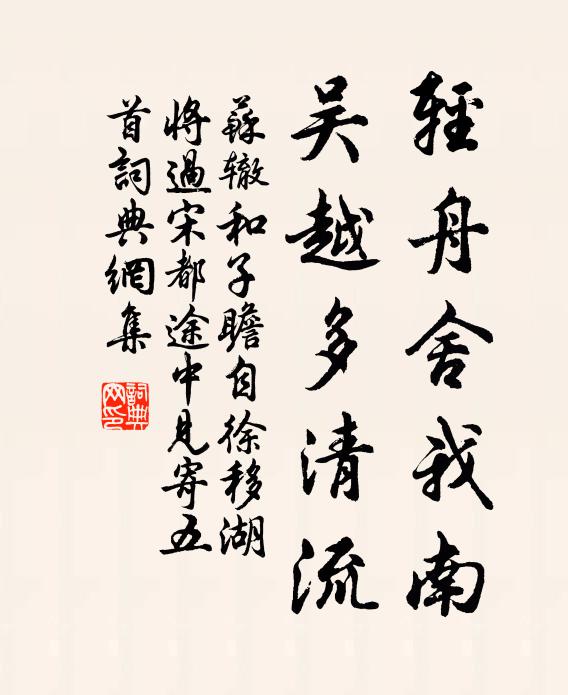 輕舟舍我南
吳越多清流
蘇轍和子瞻自徐移湖
將過宋都途中見寄五
首詞典網集
詞典
网印